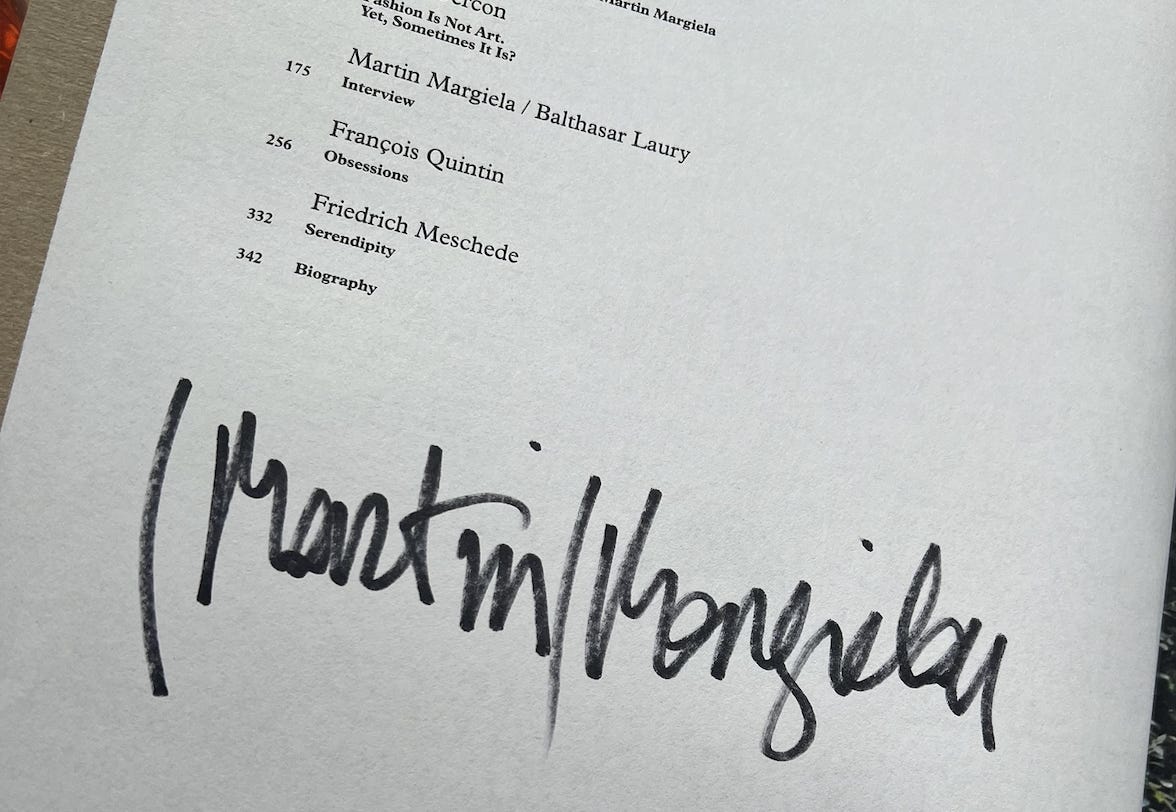 Martin Margiela
Fashion Is Not Art.
Yet, Sometimes It Is?
175
Martin Margiela / Balthasar Laury
Interview
256
François Quintin
Obsessions
332
Friedrich Meschede
Serendipity
342
Biography
Martin Margiela